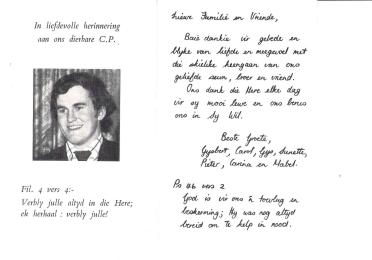 In liefdevolle herinnering
aan ons dierbare C.P.
Fil. 4 vers 4:-
Verbly julle altyd in die Here;
ek herhaal : verbly julle!
Liewe Familie en Vriende,
Baie dankie vir gebede en
blyke van liefde en meegevoel met
die skielike heengaan van ons
geliefde seun, broer en vriend.
Ons dank die Here elke dag
vir sy mooi lewe en ons berus
ons in Sy Wil.
Beste Groete,
Gysbert, Carol, Gys,
Pieter, Carina en Mabel.
Ps 46 vers 2
God is vir ons 'n toevlug en
beskerming; Hy was nog altyd
bereid om te help in nood.